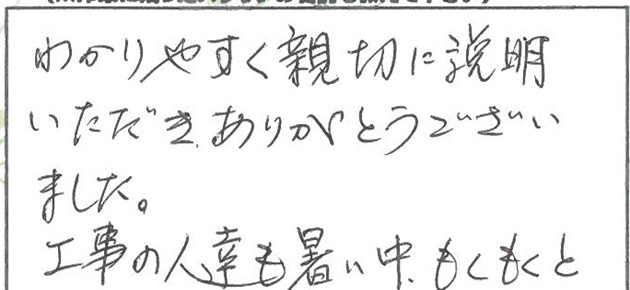 わかりやすく親切に説明
いただき、ありがとうござい
ました。
工事の人達も暑い中、もくもくと